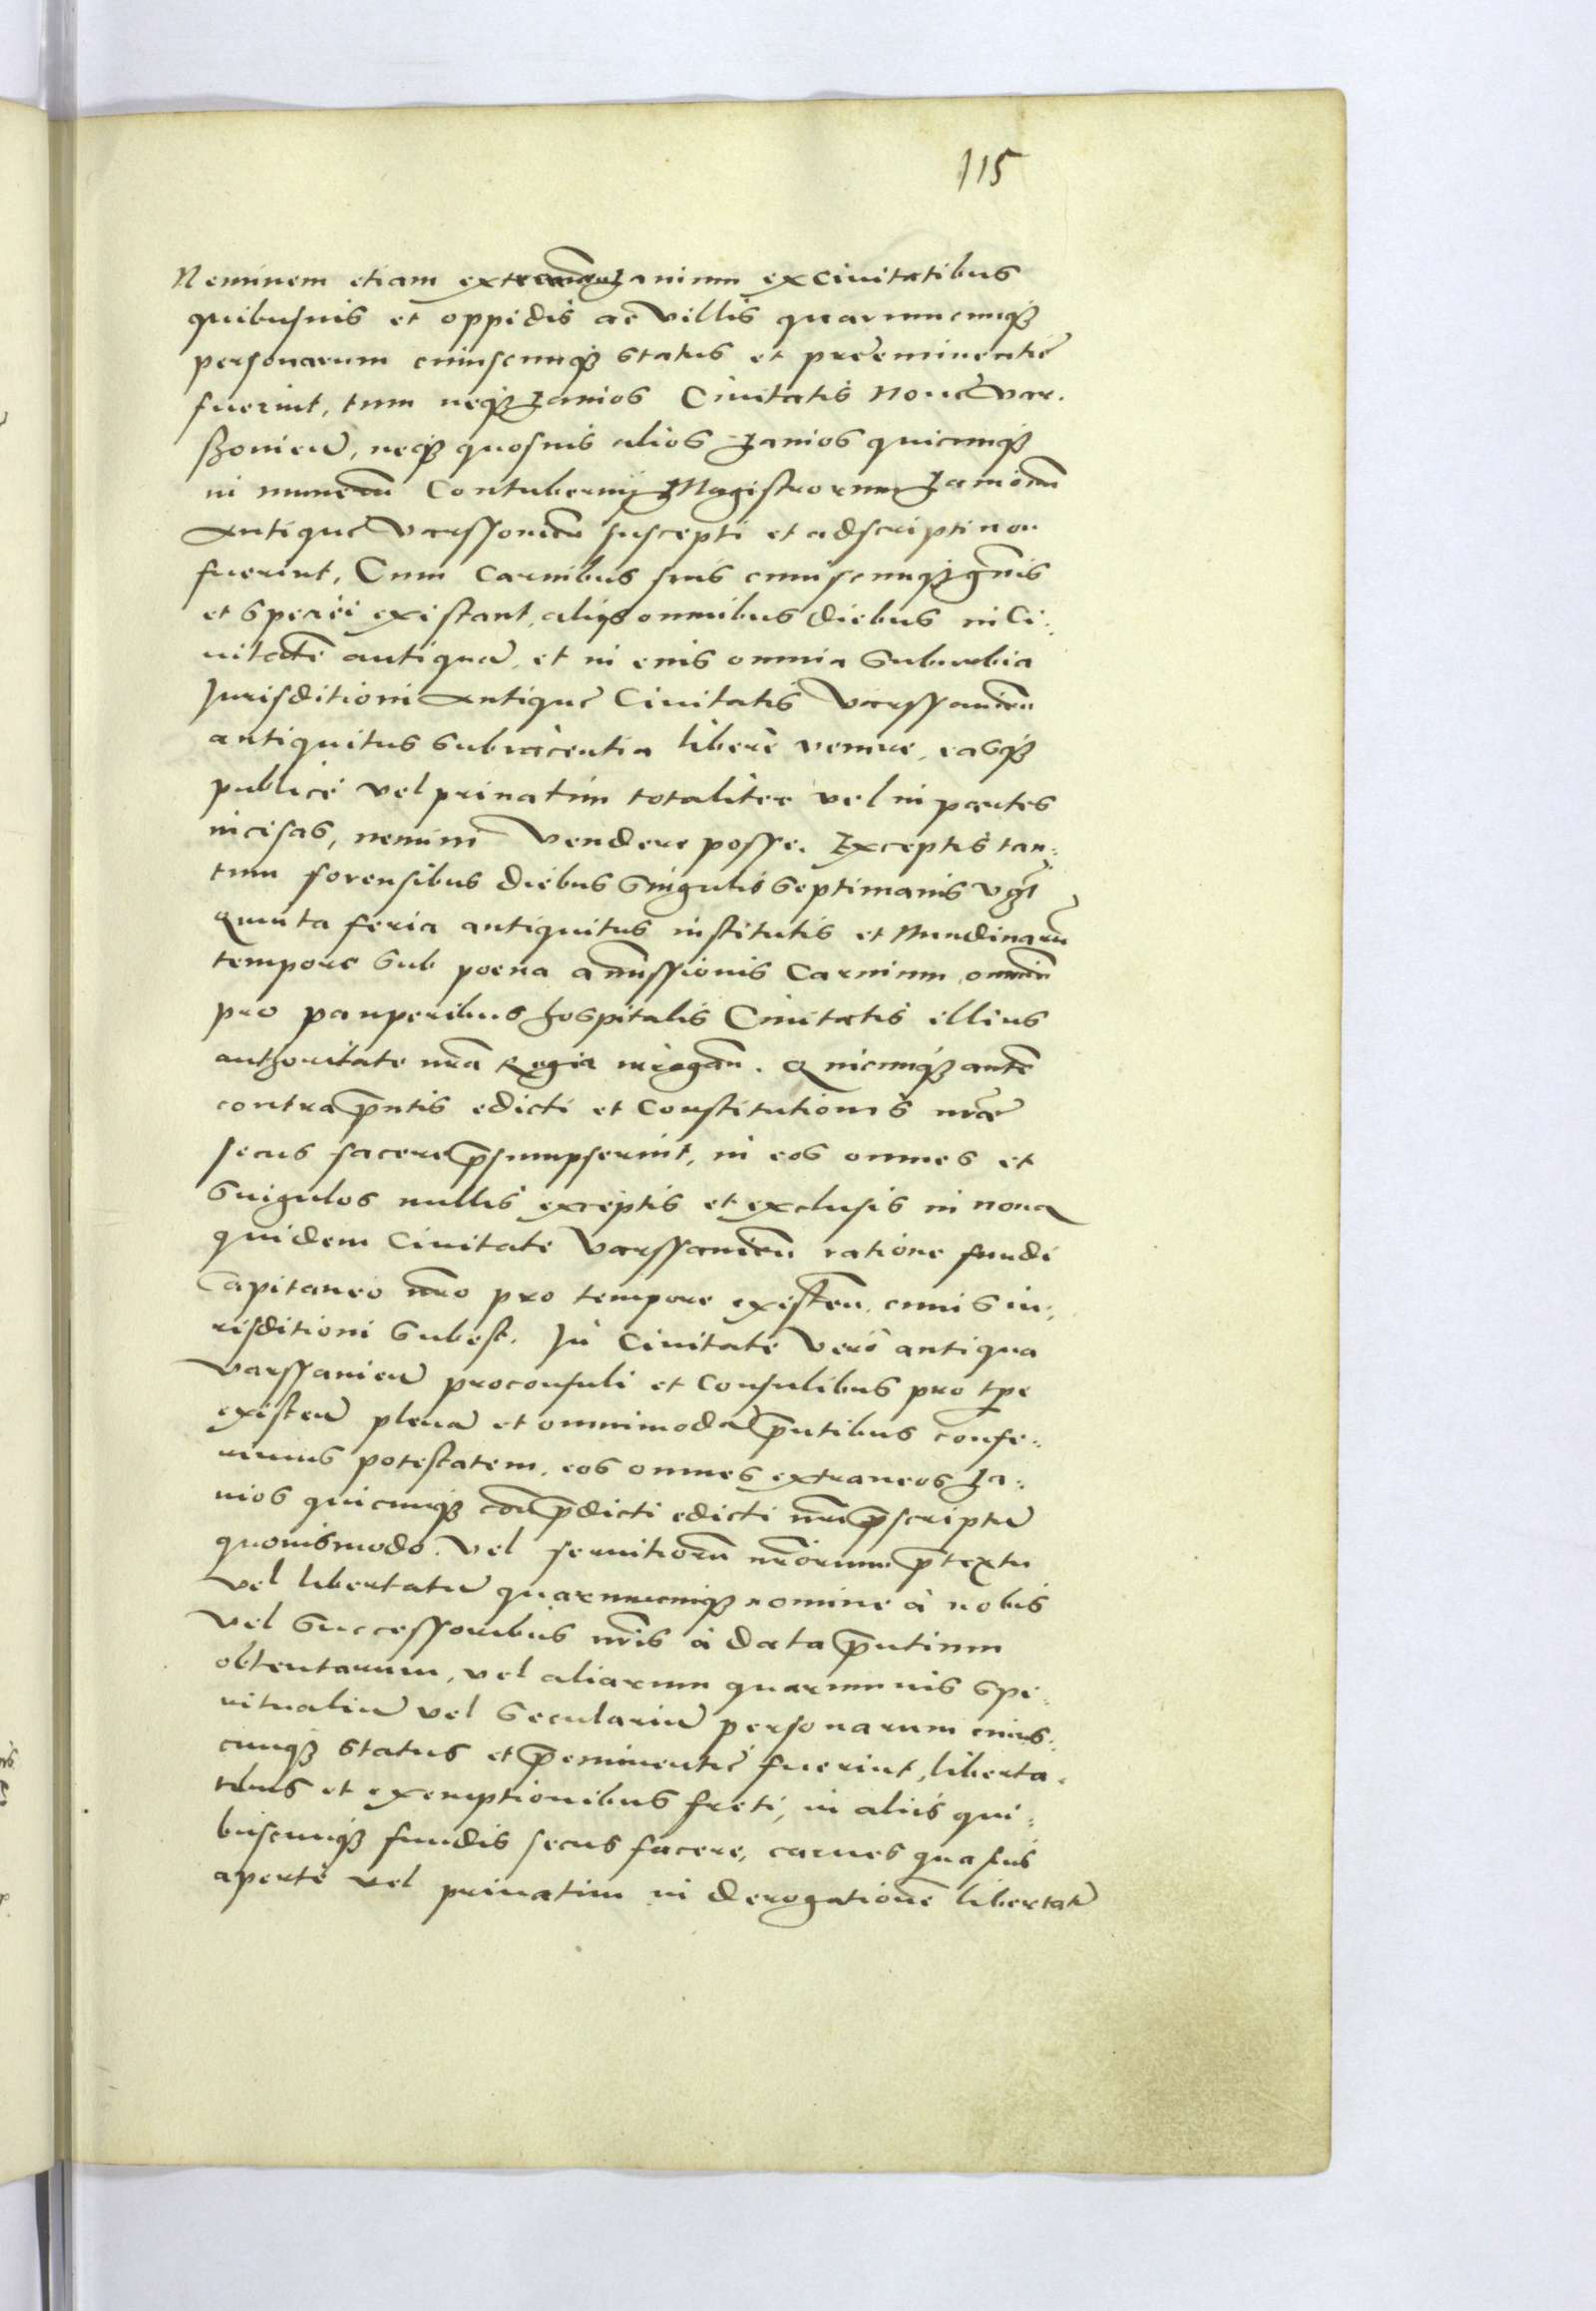 115
Neminem etiam extraneū Zanium ex Ciuitatibus
quibusuis et oppidis ac villis quarumcunqʒ
personarum cuiuscunqʒ status et preeminentie
fuerint, tum neqʒ Zanios Ciuitatis Noue Var.
szouien̄, neqʒ quosuis alios Zanios quicunqʒ
in numerū Contubernij Magistrorum Zanionū
Antique Varssouien̄ suscepti et adscripti non
fuerint, Cum carnibus suis cuiuscunqʒ gn̄is
et speciei existant, alijs omnibus diebus in Ci:
uitatē antiquā, et in eius omnia suburbia
Jurisditioni Antique Ciuitatis Varssauien̄
antiquitus subiacentia liberè venire, easqʒ
publicè vel priuatim totaliter vel in partes
incisas, nemini vendere posse. Exceptis tan:
tum forensibus diebus singulis septimanis vʒlt
quinta feria antiquitus institutis et Nundinarū
tempore sub poena amissionis carnium omniū
pro pauperibus hospitalis Ciuitatis illius
authoritate nrā Regia irrogan̄. Quicunqʒ autē
contra p̄ntis edicti et Constitutionis nrē
secus facere p̄sumpserint, in eos omnes et
singulos nullis exceptis et exclusis in noua
quidem Ciuitate Varssauien̄ ratione fundi
Capitaneo nrō pro tempore existen̄, cuius iu:
risditioni subest. In Ciuitate verò antiqua
Varssauien̄ proconsuli et Consulibus pro tpe
existen̄ plenā et omnimodā p̄ntibus confe:
rimus potestatem, eos omnes extraneos Za:
nios quicunqʒ con̄ p̄dicti edicti nrī p̄scriptū
quouismodo. vel seruitiorū nrōrum p̄textu
vel libertatū quarumcunqʒ nomine à nobis
vel successoribus nrīs à data p̄ntium
obtentarum, vel aliarum quarumuis spi:
ritualiū vel seculariū personarum cuius:
cunqʒ status et p̄eminentie fuerint, liberta:
tibus et exemptionibus freti, in aliis qui:
buscunqʒ fundis secus facere, carnes quasuis
apertè vel priuatim in derogationē libertatū